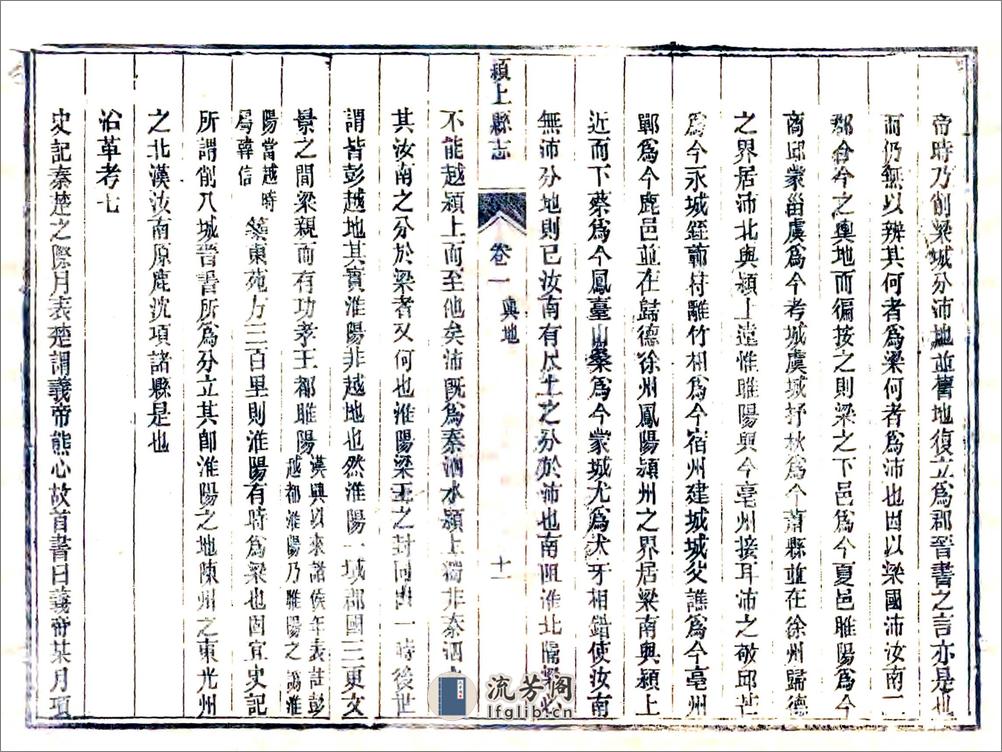 帝時乃削梁城分沛地並舊地復立爲郡晉書之言亦是也
而仍無以辨其何者爲梁何者爲沛也因以梁國沛汝南二
郡合今之輿地而徧按之則梁之下邑爲今夏邑睢陽爲今
商邱蒙甾虞爲今考城虞城杼秋爲今蕭縣並在徐州歸德
之界居沛北與潁上遠惟睢陽與今亳州接耳沛之敬邱芒
爲今永城銍鄿符離竹相爲今宿州建城城父譙爲今亳州
鄲爲今鹿邑並在歸德徐州鳳陽潁州之界居梁南與潁上
近而下蔡爲今鳳臺山桑爲今蒙城尤爲犬牙相錯使汝南
無沛分地則已汝南有尺土之分於沛也南阻淮北
潁上縣志
卷一
輿地
十一
不能越潁上而至他矣沛旣爲秦泗水潁上獨非秦泗
其汝南之分於梁者又何也淮陽梁王之封同出一時後世
謂皆彭越地其實淮陽非越地也然淮陽一城郡國三更文
景之間梁親而有功孝王都睢陽
漢興以來諸侯年表註彭
越都淮陽乃睢陽之譌淮
陽當越時
屬韓信
築東苑方三百里則淮陽有時爲梁也固宜史記
所謂削八城晉書所爲分立其卽淮陽之地陳州之東光州
之北漢汝南原鹿沈項諸縣是也
沿革考七
史記秦楚之際月表楚謂義帝熊心故首書曰義帝某月項
流芳阁
lfglib.cn